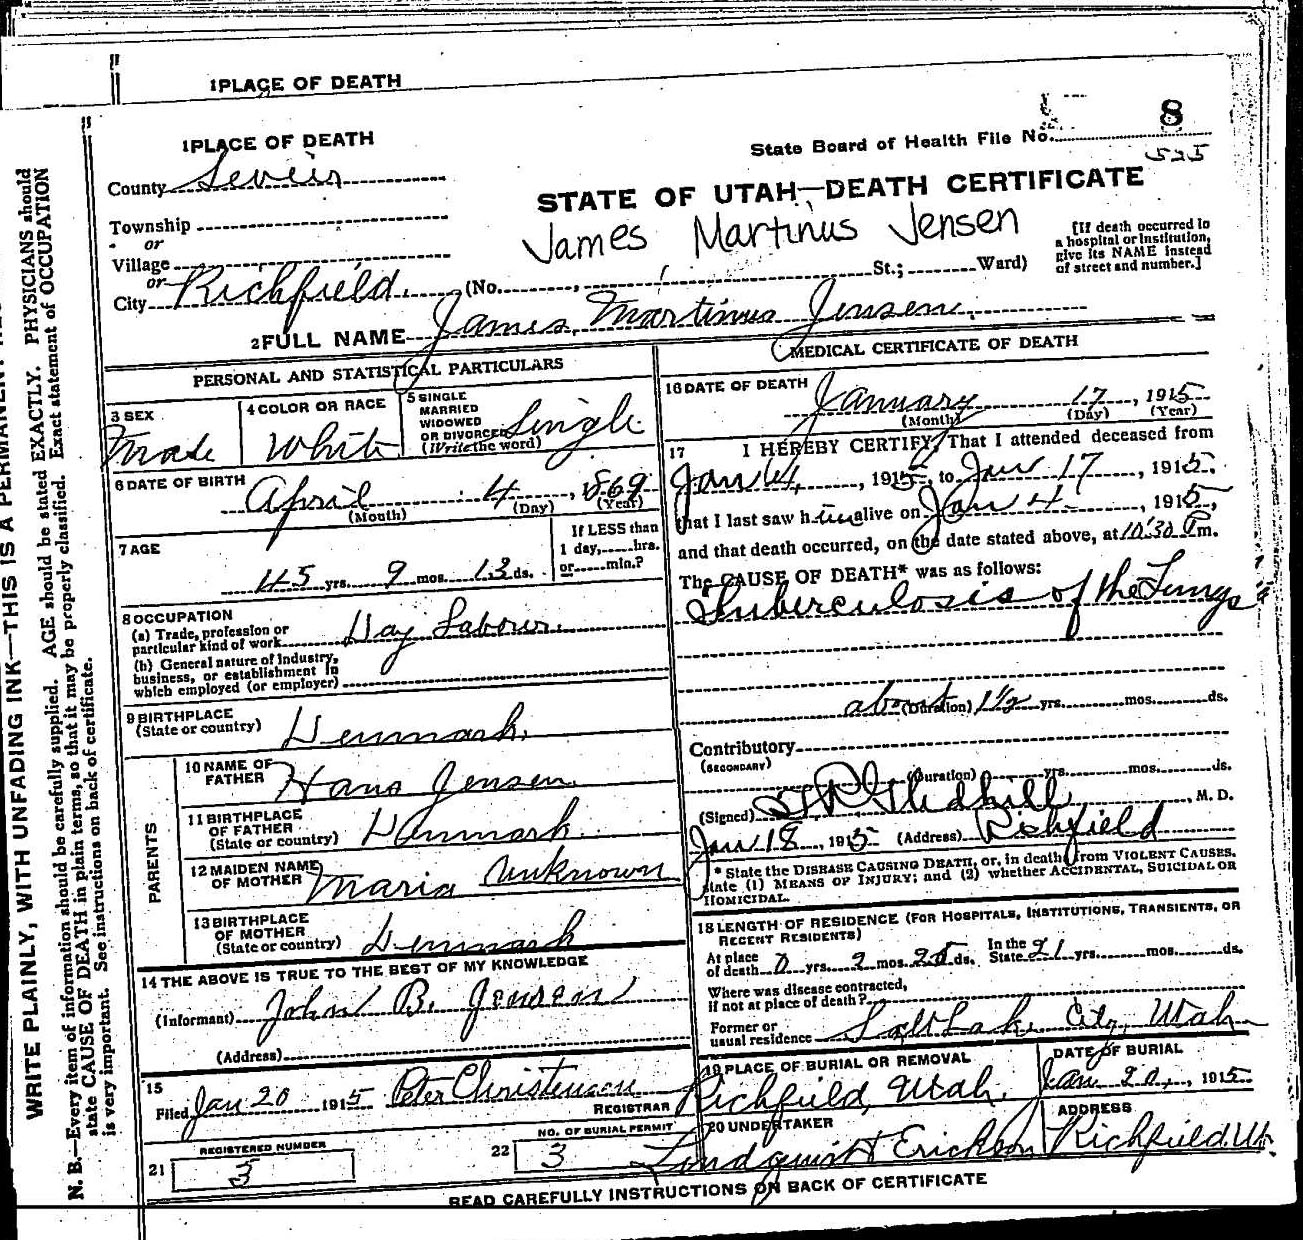 1 PLACE OF DEATH
1 PLACE OF DEATH
State Board of Health File No. 8
525
County Sevier
STATE OF UTAH—DEATH CERTIFICATE
Township
or
Village
James Martinus Jensen
[If death occurred in a hospital or institution, give its NAME instead of street and number.]
or
City Richfield. (No. , St.; Ward)
2 FULL NAME James Martinus Jensen.
PERSONAL AND STATISTICAL PARTICULARS
3 SEX Male
4 COLOR OR RACE White
5 SINGLE MARRIED WIDOWED OR DIVORCED (Write the word) Single
6 DATE OF BIRTH April 4, 1869
(Month) (Day) (Year)
7 AGE 45 yrs. 9 mos. 13 ds.
If LESS than 1 day, hrs. or min.?
8 OCCUPATION
(a) Trade, profession or particular kind of work Day Laborer.
(b) General nature of Industry, business, or establishment in which employed (or employer)
9 BIRTHPLACE (State or country) Denmark.
PARENTS
10 NAME OF FATHER Hans Jensen
11 BIRTHPLACE OF FATHER (State or country) Denmark
12 MAIDEN NAME OF MOTHER Maria Unknown
13 BIRTHPLACE OF MOTHER (State or country) Denmark
14 THE ABOVE IS TRUE TO THE BEST OF MY KNOWLEDGE
(Informant) John B. Jensen
(Address)
15 Filed Jan 20 1915 Peter Christensen
REGISTRAR
21 REGISTERED NUMBER 3
22 NO. OF BURIAL PERMIT 3
MEDICAL CERTIFICATE OF DEATH
16 DATE OF DEATH January 17, 1915
(Month) (Day) (Year)
17 I HEREBY CERTIFY, That I attended deceased from
Jan 4, 1915, to Jan 17, 1915,
that I last saw h im alive on Jan 4, 1915,
and that death occurred, on the date stated above, at 10:30 P m.
The CAUSE OF DEATH* was as follows:
Tuberculosis of the Lungs
about (Duration) 1½ yrs. mos. ds.
Contributory
(SECONDARY)
(Duration) yrs. mos. ds.
(Signed) Gledhill, M. D.
Jan 18, 1915 (Address) Richfield
* State the DISEASE CAUSING DEATH, or, in death from VIOLENT CAUSES, state (1) MEANS OF INJURY; and (2) whether ACCIDENTAL, SUICIDAL OR HOMICIDAL.
18 LENGTH OF RESIDENCE (FOR HOSPITALS, INSTITUTIONS, TRANSIENTS, OR RECENT RESIDENTS)
At place of death 0 yrs. 2 mos. 25 ds. In the State 21 yrs. mos. ds.
Where was disease contracted, if not at place of death?
Former or usual residence Salt Lake City, Utah
19 PLACE OF BURIAL OR REMOVAL Richfield, Utah.
DATE OF BURIAL Jan 20, 1915
20 UNDERTAKER Lindquist Erickson
ADDRESS Richfield, Ut.
READ CAREFULLY INSTRUCTIONS ON BACK OF CERTIFICATE
WRITE PLAINLY, WITH UNFADING INK—THIS IS A PERMANENT
N. B.—Every item of information should be carefully supplied. AGE should be stated EXACTLY. PHYSICIANS should
state CAUSE OF DEATH in plain terms, so that it may be properly classified. Exact statement of OCCUPATION
is very important. See instructions on back of certificate.